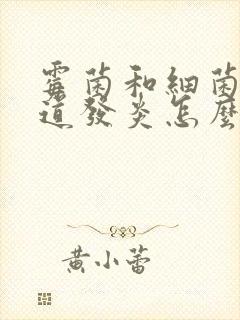 霉菌和細菌
道發炎怎麼
黄小蕾